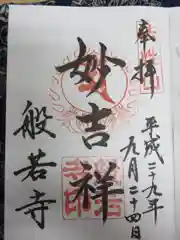 奉拝
平成二十九年
九月二十四日
妙吉祥
般若寺